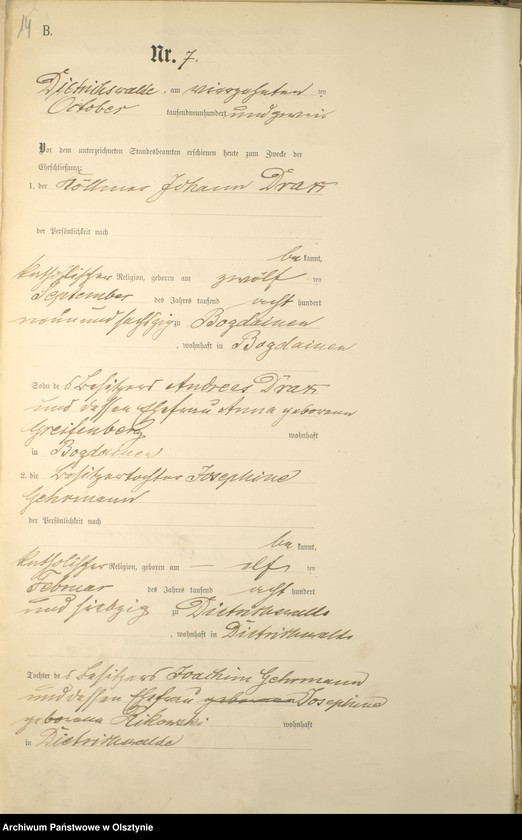 14 B.
Nr. 7.
Dietrichswalde, am vierzehnten ten
October tausendneunhundert und zwei
Vor dem unterzeichneten Standesbeamten erschienen heute zum Zwecke der
Eheschließung:
1. der Köllmer Johann
der Persönlichkeit nach
be kannt,
katholischer Religion, geboren am zwölf ten
September des Jahres tausend acht hundert
neun und sechszig zu Bogdainen
, wohnhaft in Bogdainen
Sohn des Besitzers Andreas
und dessen Ehefrau Anna geborenen
Greifenberg wohnhaft
in Bogdainen
2. die Besitzertochter Josephine
Gehrmann
der Persönlichkeit nach
be kannt,
katholischer Religion, geboren am — elf ten
Februar des Jahres tausend acht hundert
und siebzig zu Dietrichswalde
, wohnhaft in Dietrichswalde
Tochter des Besitzers Joachim Gehrmann
und dessen Ehefrau geborenen Josephine
geborene wohnhaft
in Dietrichswalde
Archiwum Państwowe w Olsztynie